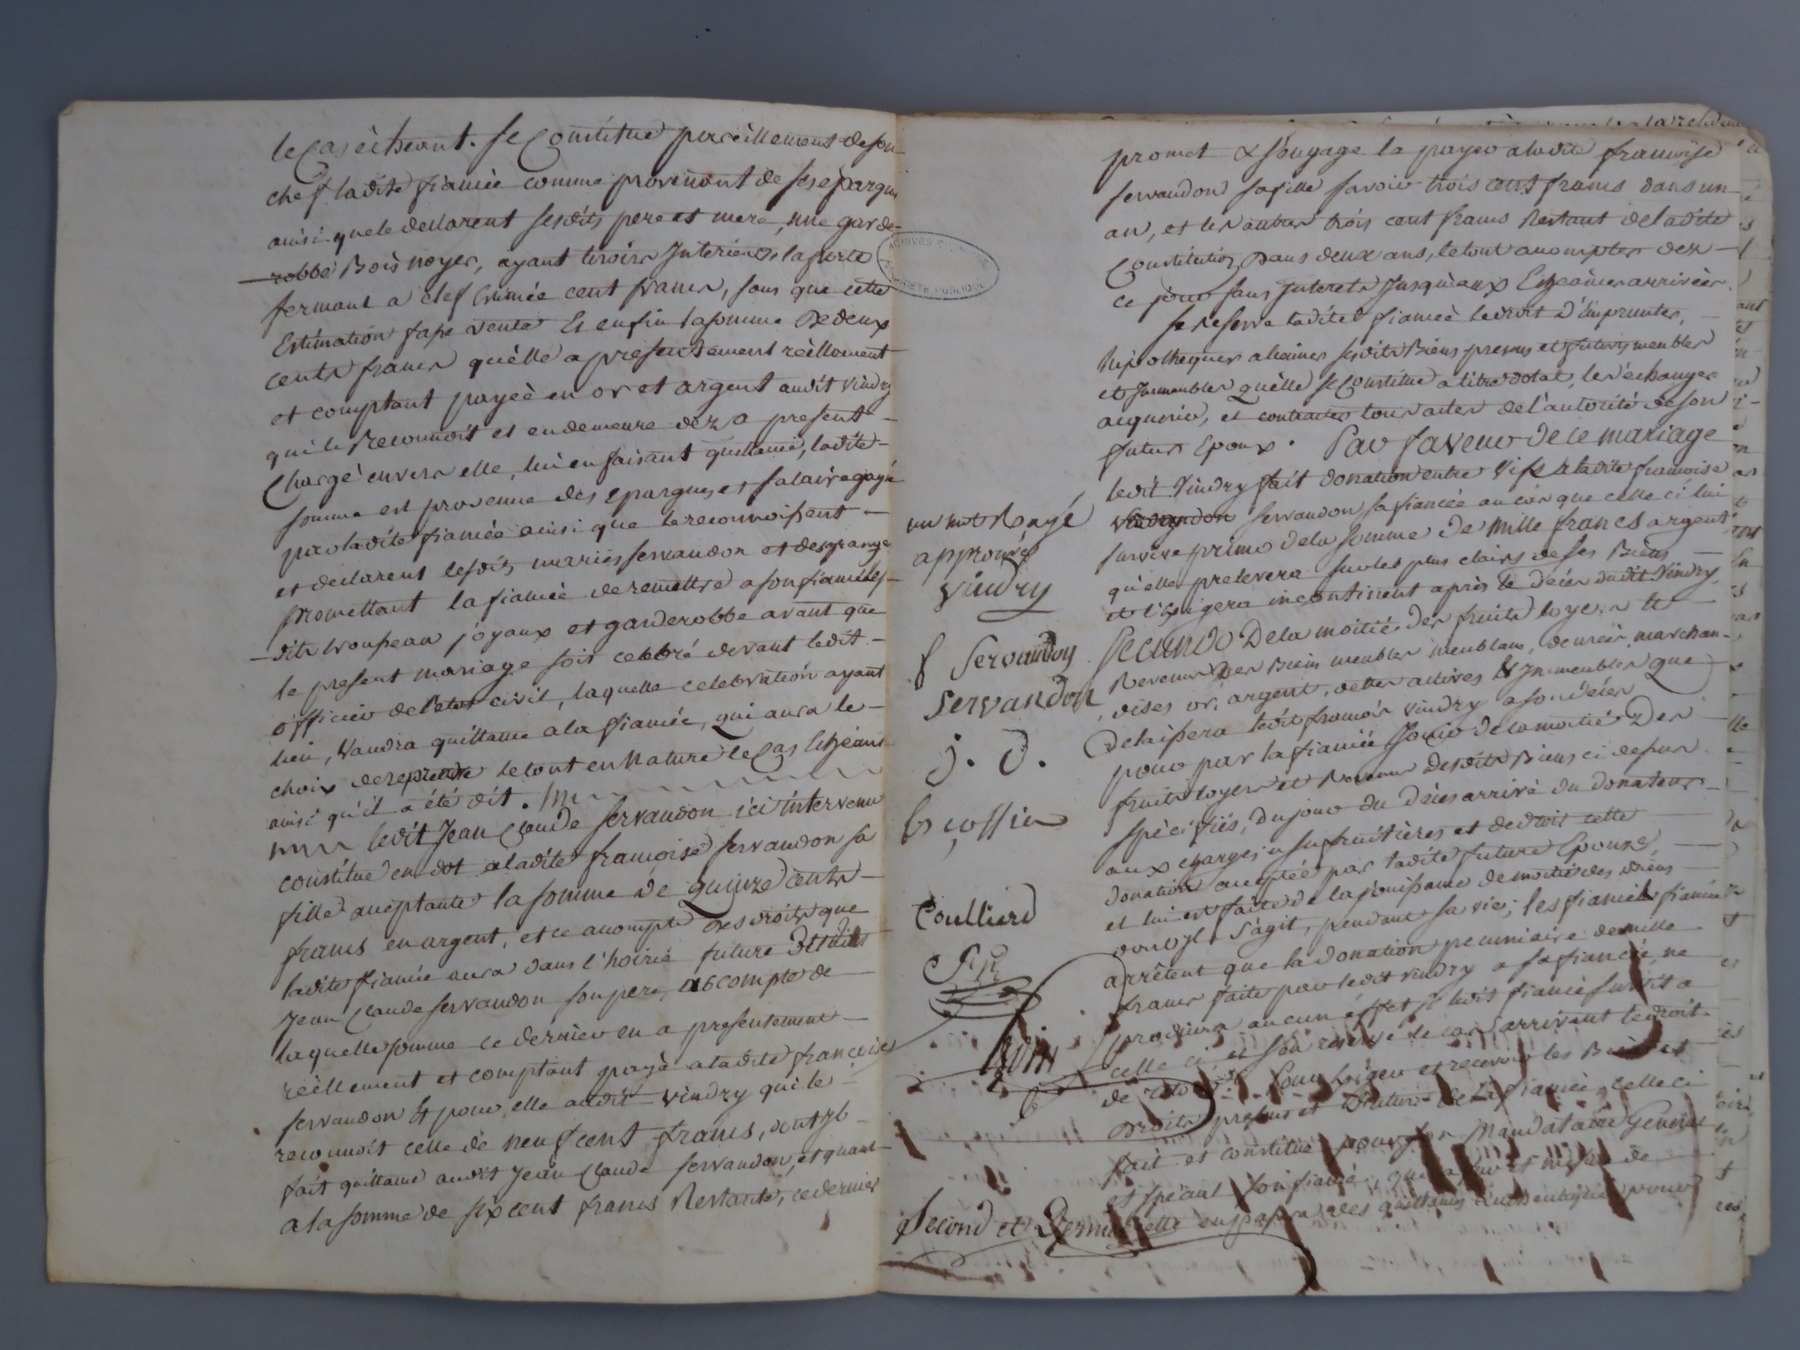 le Cas échéant. Se Constitue pareillement de son
chef ladite fiancée comme provenant de ses epargnes
ainsi que le declarent sesdits pere et mere, une garde-
robbe Bois noyer, ayant tiroirs Interieurs, la porte
fermant a clef Estimée cent francs, sans que cette
Estimation fasse vente Et enfin la somme De deux
cents francs qu'elle a presentement réellement
et comptant payée en or et argent audit Vindry
qui le Reconnoit et en demeure dez a present
Chargé envers elle, lui en faisant quittance, ladite
somme est provenue des epargnes et salaire gagné
par ladite fiancée ainsi que le reconnoissent
et declarent lesdits mariés Servandon et desgrange
Promettant la fiancée de remettre a son fiancé les-
dits troupeau joyaux et garderobbe avant que
le present mariage soit celebré devant ledit
officier de l'etat civil, laquelle celebration ayant
lieu, Vaudra quittance a la fiancée, qui aura le
choix de reprendre le tout en Nature le Cas Echéant
ainsi qu'il a été dit.
ledit Jean Claude Servandon ici intervenu
constitue en dot a ladite françoise Servandon sa
fille acceptante la somme de Quinze cents
francs en argent, et ce acompte des droits que
ladite fiancée aura dans l'hoirie future Dudit
Jean Claude Servandon son pere, a compte de
laquelle somme ce dernier en a presentement
réellement et comptant payé a ladite françoise
Servandon Et pour elle audit Vindry qui le
reconnoit celle de neuf cent francs, dont il
fait quittance audit Jean Claude Servandon, et quant
a la somme de six cent francs Restante, ce dernier
promet & s'engage la payer a ladite françoise
Servandon sa fille savoir trois cent francs dans un
an, et les autres trois cent francs Restant de ladite
Constitution Dans deux ans, le tout acompter dez
ce jour sans Interets Jusqu'aux Echéances arrivées.
Se Reserve ladite fiancée le droit D'Emprunter,
hipothequer aliéner sesdits Biens presens et futurs meubles
et Immeubles qu'elle se Constitue a titre dotal, les échanger
acquerir, et contracter tous actes de l'autorité de son
futur Epoux. Par faveur de ce mariage
ledit Vindry fait donation entre Vifs a ladite françoise
Servandon sa fiancée au cas que celle ci lui
survive primo de la somme de Mille francs argent
qu'elle prelevera sur les plus clairs de ses Biens
et Exigera incontinent après le décès dudit Vindry
Secundo De la moitié des fruits loyers et
Revenus Des Biens meubles meublans, denrées, marchan-
dises or, argent, dettes actives & Immeubles que
delaissera ledit françois Vindry a son décès
pour par la fiancée Jouir de la moitié Des
fruits loyers et Revenus desdits Biens ci dessus
spécifiés, du jour du décès arrivé du donateur
aux charges usufruitières et de droit cette
donation acceptée par ladite future Epouse,
et lui est faite de la jouissance de moitié des Biens
dont Il s'agit, pendant sa vie; les fiancés fiancée
arrêtent que la donation pecuniaire de mille
francs faite par ledit Vindry a sa fiancée, ne
produira aucun effet si ledit fiancé survit a
celle ci et s'en reserve le cas arrivant le droit
de retour. Pour Exiger et recevoir les Biens et
Droits presens et futurs de la fiancée, celle ci
fait et constitue pour son Mandataire General
et special son fiancé, qui
en passera les quittances authentiques pour
un mot Rayé
approuvé
Vindry
f Servandon
Servandon
J. D.
Brossier
Coullierd
Second et Dernier